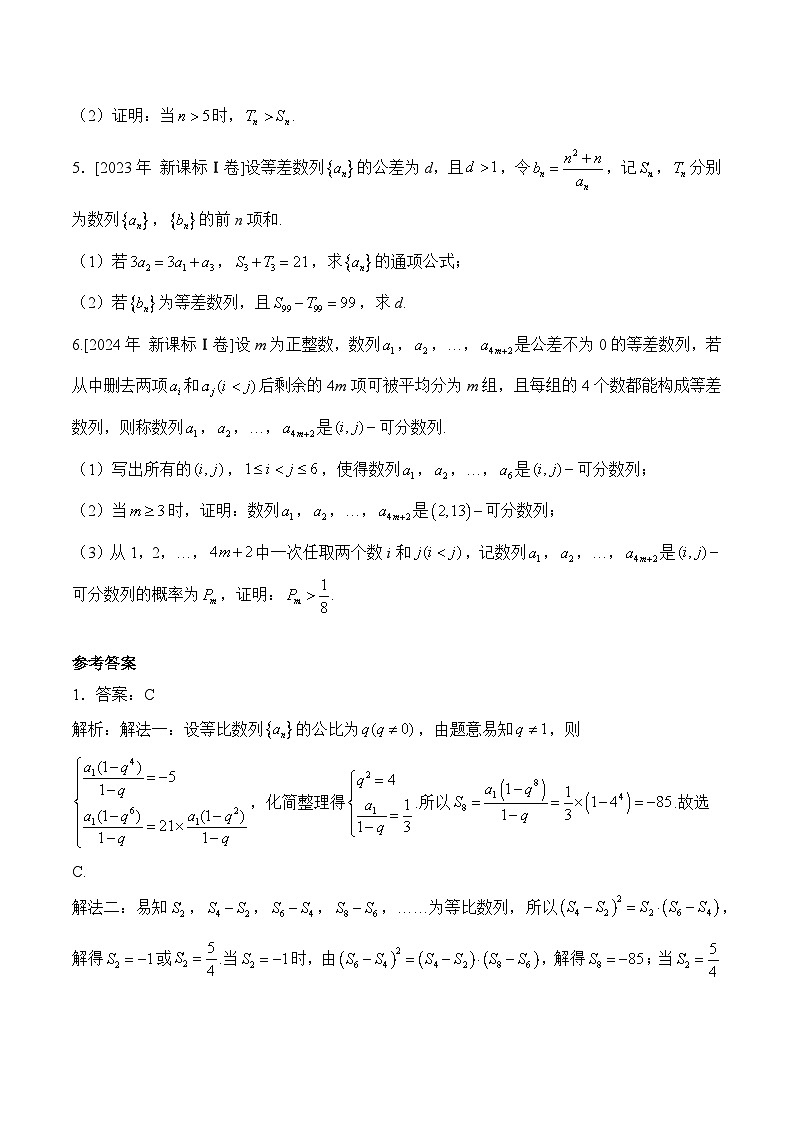 （2）证明：当n＞5时，Tₙ＞Sₙ.
5．[2023年 新课标Ⅰ卷]设等差数列{aₙ}的公差为d，且d＞1，令bₙ=(n²+n)/aₙ，记Sₙ，Tₙ分别
为数列{aₙ}，{bₙ}的前n项和.
（1）若3a₂=3a₁+a₃，S₃+T₃=21，求{aₙ}的通项公式；
（2）若{bₙ}为等差数列，且S₉₉−T₉₉=99，求d.
6.[2024年 新课标Ⅰ卷]设m为正整数，数列a₁，a₂，…，a₄ₘ₊₂是公差不为0的等差数列，若
从中删去两项aᵢ和aⱼ(i<j)后剩余的4m项可被平均分为m组，且每组的4个数都能构成等差
数列，则称数列a₁，a₂，…，a₄ₘ₊₂是(i,j)−可分数列.
（1）写出所有的(i,j)，1≤i<j≤6，使得数列a₁，a₂，…，a₆是(i,j)−可分数列；
（2）当m≥3时，证明：数列a₁，a₂，…，a₄ₘ₊₂是(2,13)−可分数列；
（3）从1，2，…，4m+2中一次任取两个数i和j(i<j)，记数列a₁，a₂，…，a₄ₘ₊₂是(i,j)−
可分数列的概率为Pₘ，证明：Pₘ>1/8.
参考答案
1．答案：C
解析：解法一：设等比数列{aₙ}的公比为q(q≠0)，由题意易知q≠1，则
{a₁(1−q⁴)/(1−q)=−5, a₁(1−q⁶)/(1−q)=21×a₁(1−q²)/(1−q)，化简整理得{q²=4, a₁/(1−q)=1/3.所以S₈=a₁(1−q⁸)/(1−q)=1/3×(1−4⁴)=−85.故选
C.
解法二：易知S₂，S₄−S₂，S₆−S₄，S₈−S₆，……为等比数列，所以(S₄−S₂)²=S₂·(S₆−S₄)，
解得S₂=−1或S₂=5/4.当S₂=−1时，由(S₆−S₄)²=(S₄−S₂)·(S₈−S₆)，解得S₈=−85；当S₂=5/4